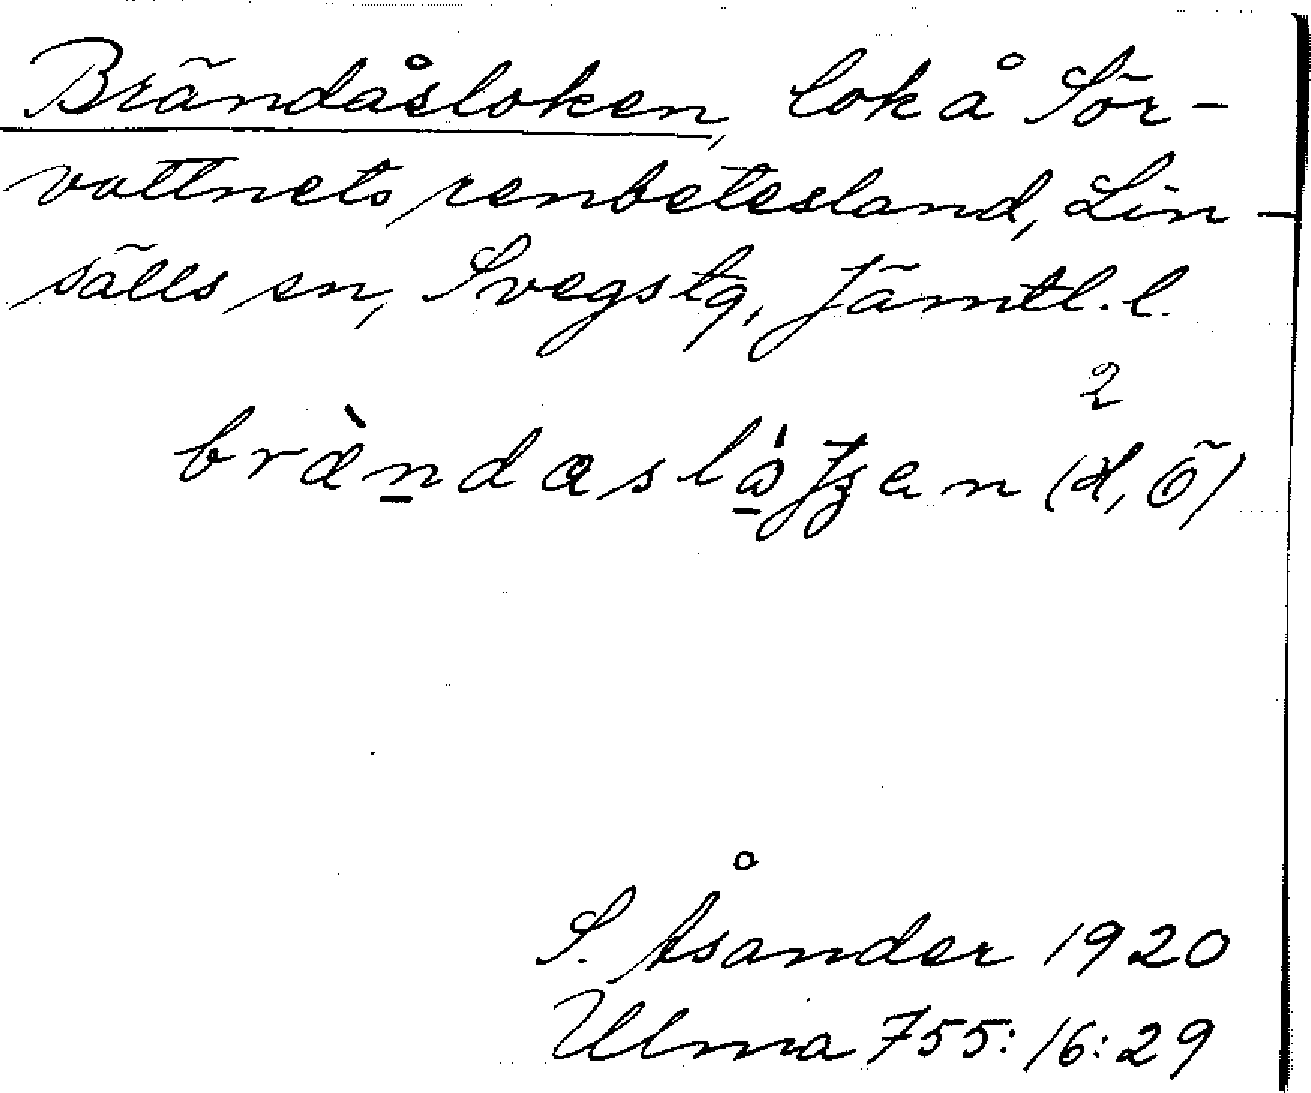 Brändåsloken, lok å Sör-
vattnets renbetesland, Lin-
sälls sn, Svegs tg, Jämtl. l.
2
S. Åsander 1920
Ulma 755:16:29